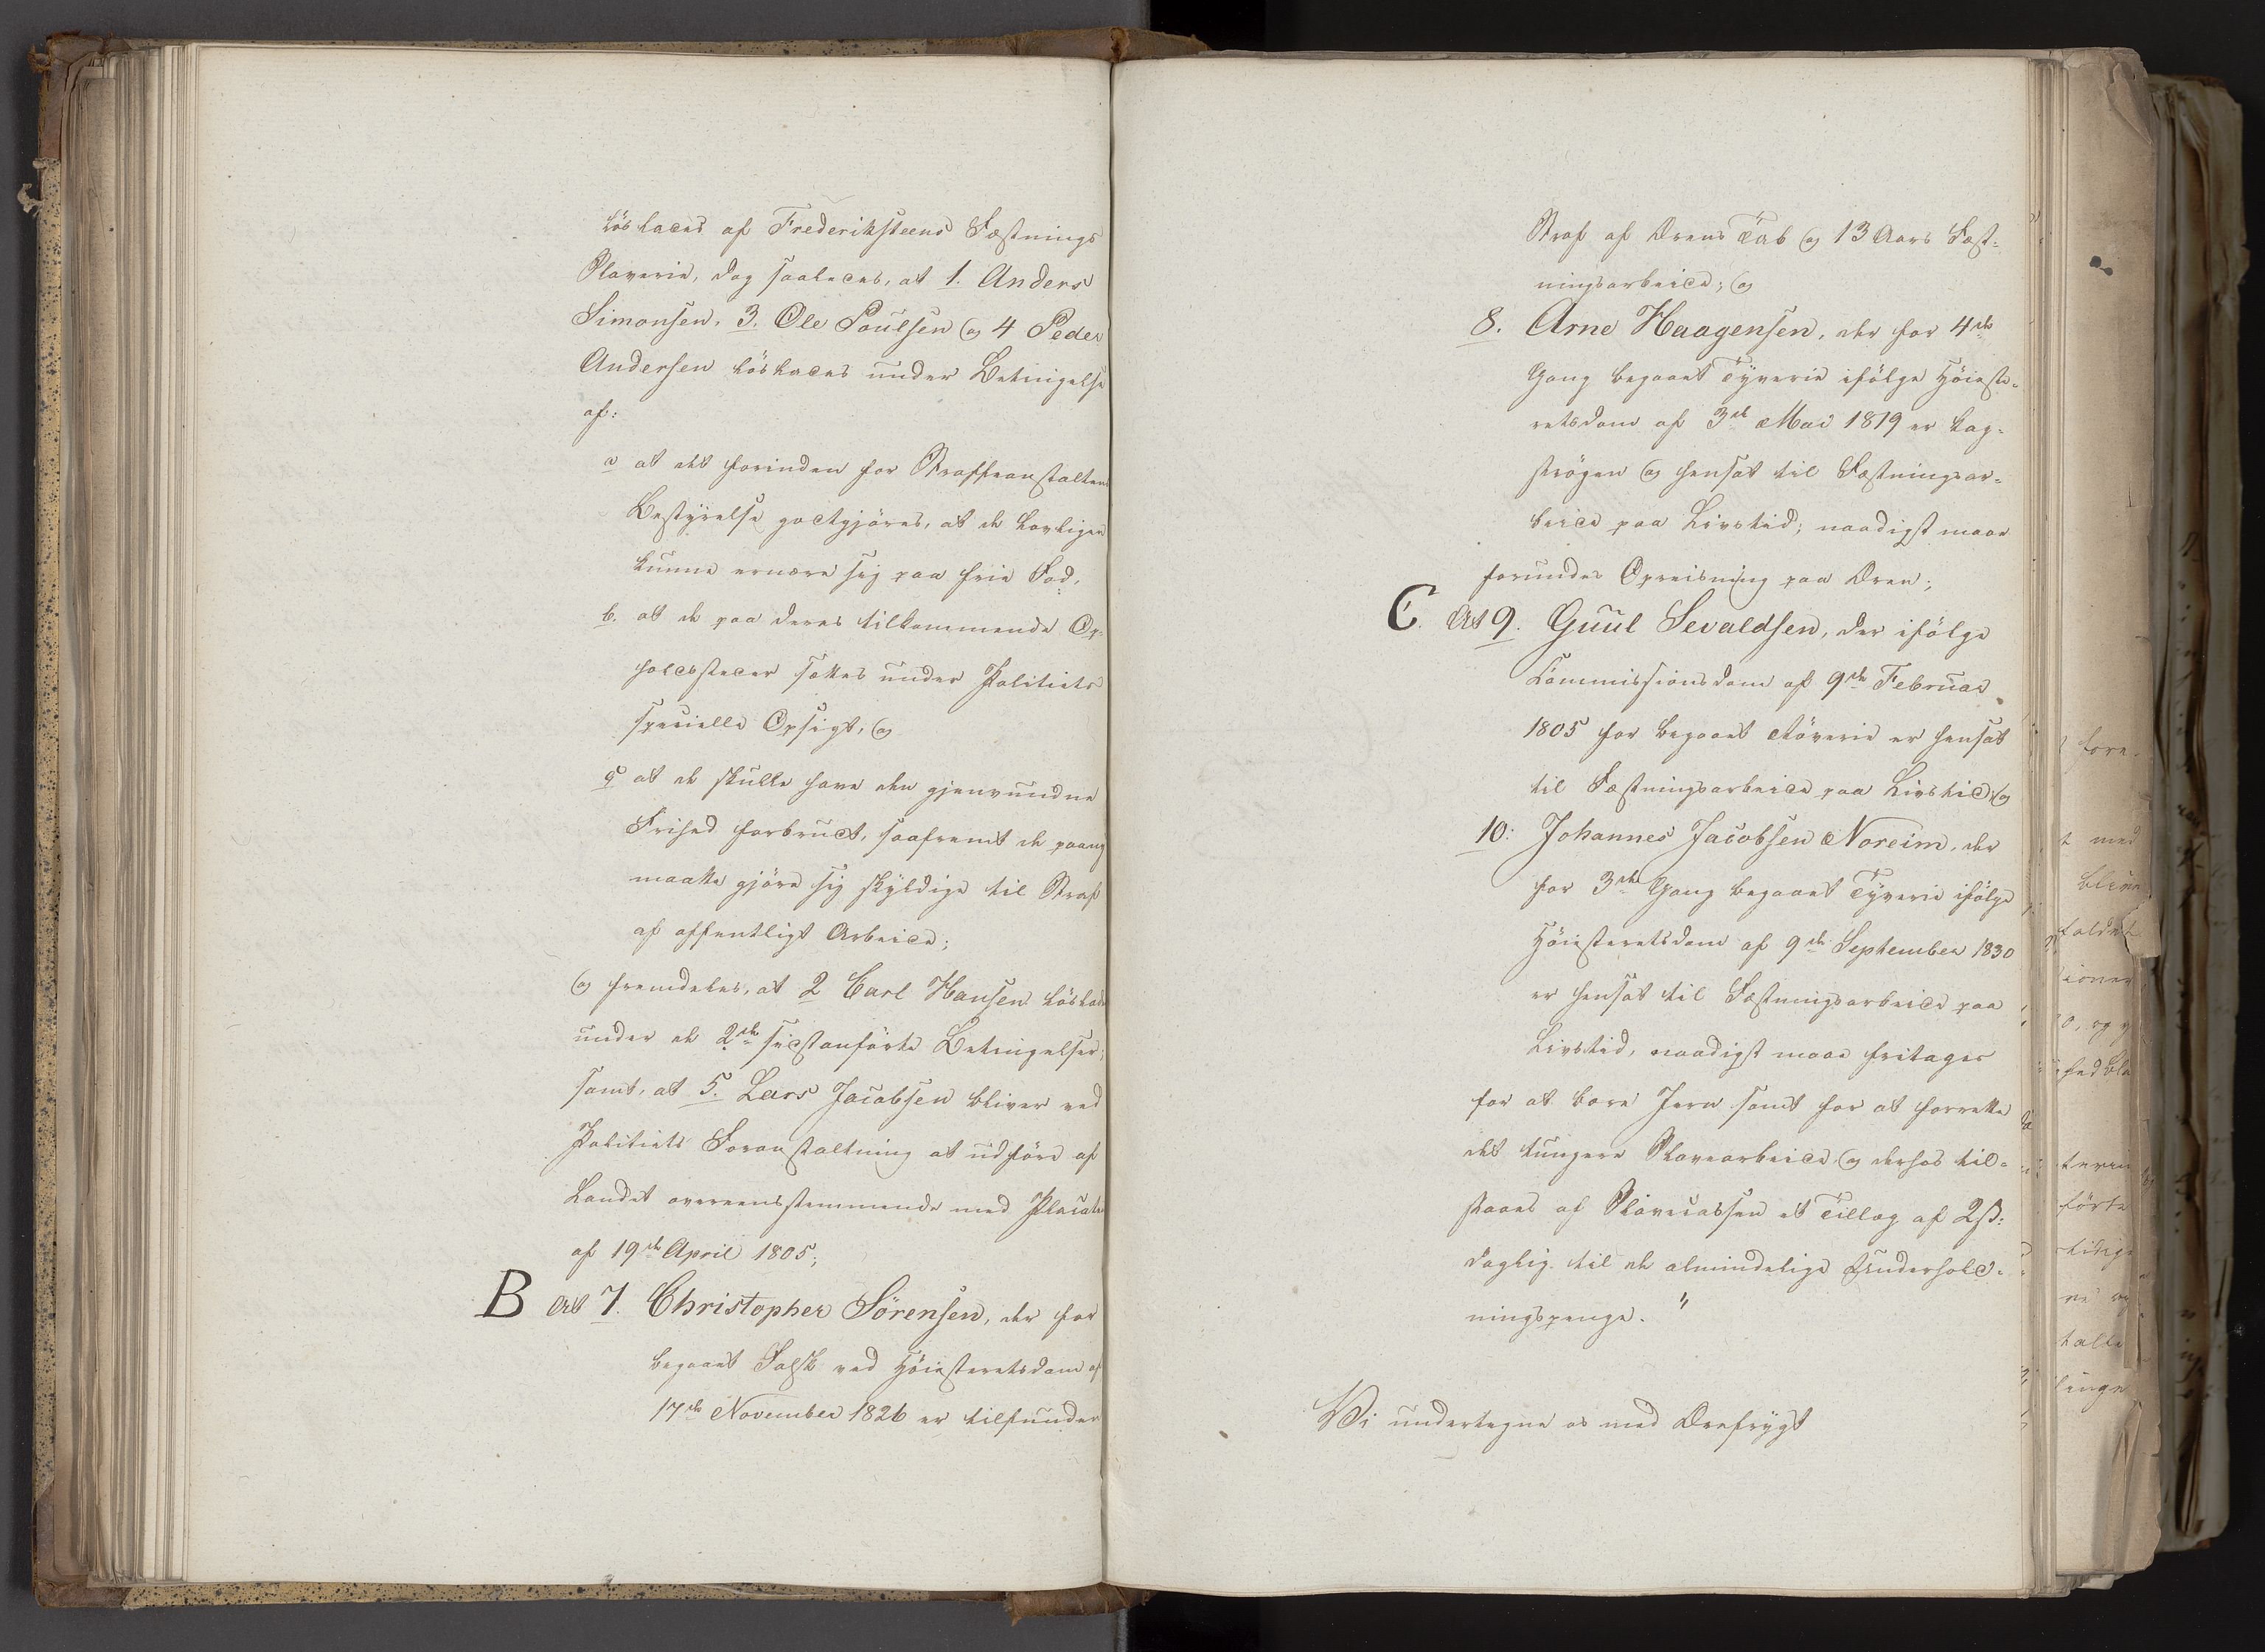 löslades af Frederiksteens Fæstnings
Slaverie, dog saaledes, at 1. Anders
Simonsen, 3. Ole Poulsen og 4 Peder
Andersen löslades under Betingelse
af:
a at det forinden for Straffeanstaltens
Bestyrelse godtgjöres, at de lovligen
kunne ernære sig paa frie Fod,
b. at de paa deres tilkommende Op-
holdssteder sættes under Politiets
specielle Opsigt, og
c at de skulle have den gjenvundne
Frihed forbrudt, saafremt de paany
maatte gjöre sig skyldige til Straf
af offentligt Arbeide;
og fremdeles, at 2 Carl Hansen löslades
under de 2de sidstanförte Betingelser;
samt, at 5. Lars Jacobsen bliver ved
Politiets Foranstaltning at udföre af
Landet overeensstemmende med Placat
af 19de April 1805;
B At 7. Christopher Sörensen, der for
begaaet Falsk ved Höiesteretsdom af
17de November 1826 er tilfunden
Straf af Ærens Tab og 13 Aars Fæst-
ningsarbeide; og
8. Arne Haagensen, der for 4de
Gang begaaet Tyverie ifölge Höieste-
retsdom af 3de Mai 1819 er kag-
strögen og hensat til Fæstningsar-
beide paa Livstid; naadigst maae
forundes Opreisning paa Æren;
C. At 9. Guul Sevaldsen, der ifölge
Commissionsdom af 9de Februar
1805 for begaaet Röverie er hensat
til Fæstningsarbeide paa Livstid, og
10: Johannes Jacobsen Noreim, der
for 3die Gang begaaet Tyverie ifölge
Höiesteretsdom af 9de September 1830
er hensat til Fæstningsarbeide paa
Livstid, naadigst maae fritages
for at bære Jern samt for at forrette
det tungere Slavearbeide, og derhos til-
staaes af Slavecassen et Tillæg af 2ß:
daglig til de almindelige Underhold-
ningspenge. "
Vi undertegne os med Ærefrygt